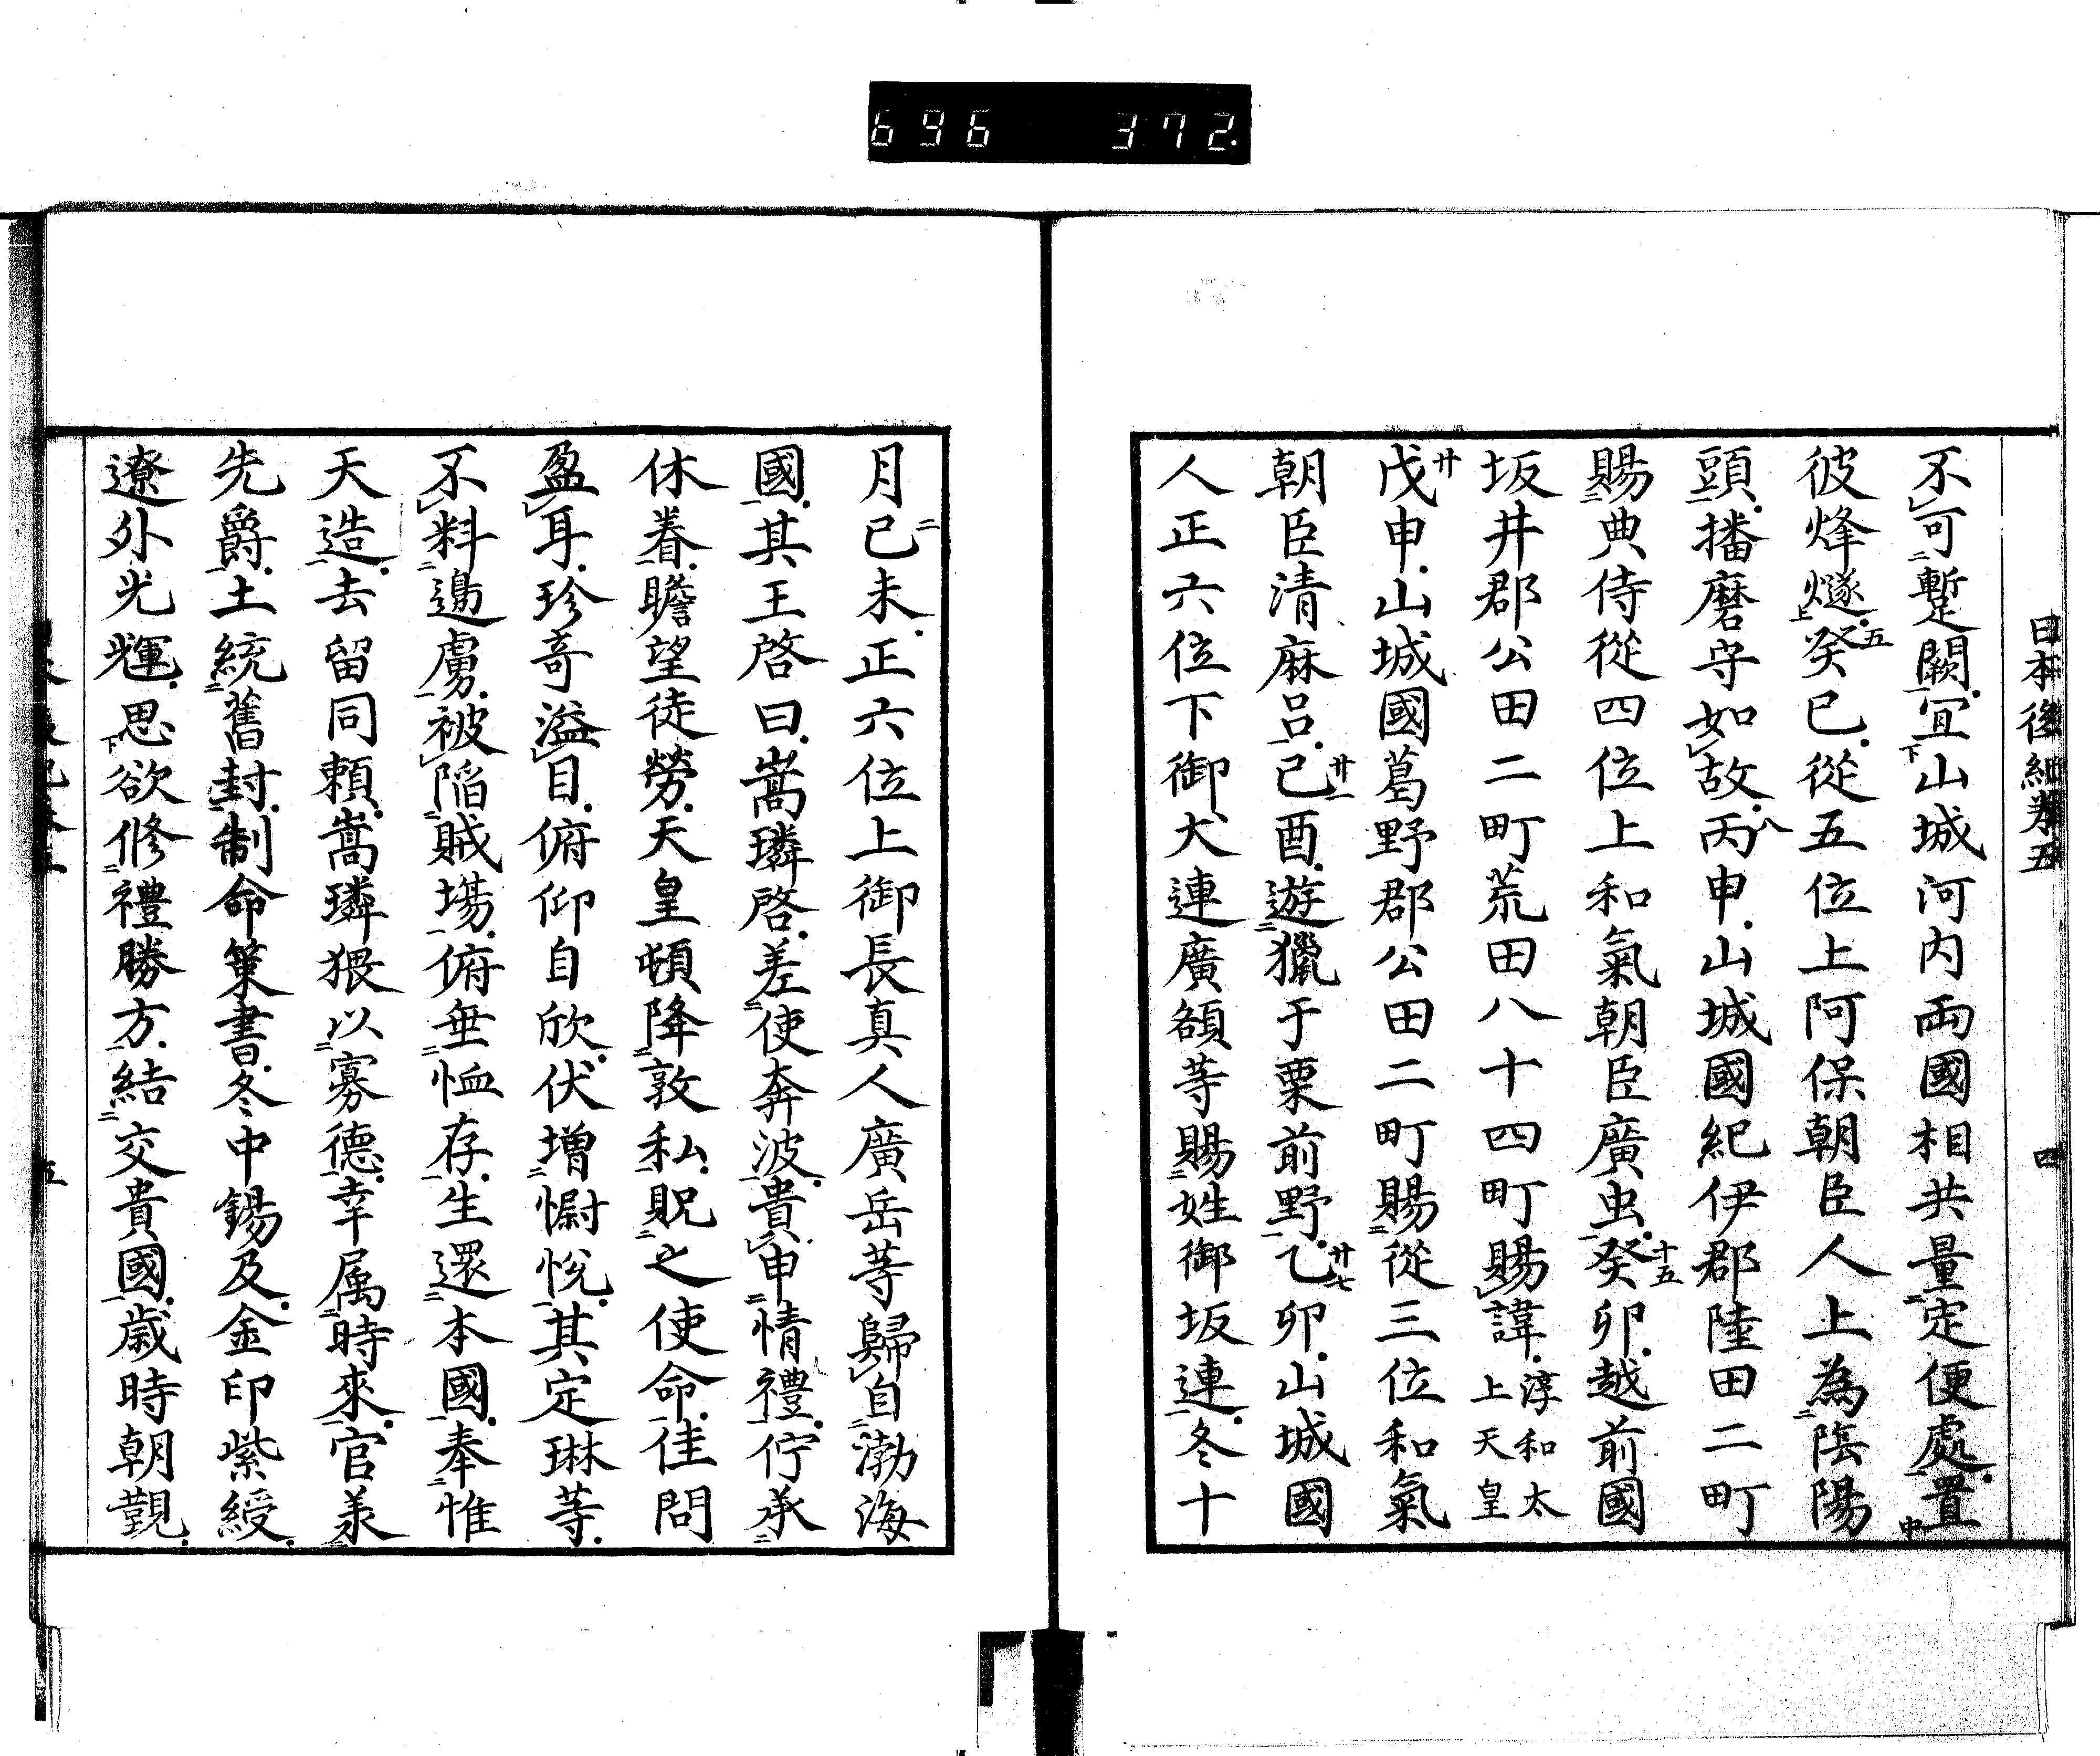 696 372.
日本後紀卷五 四
不可暫闕宜山城河内兩國相共量定便處置
彼烽燧癸巳從五位上阿保朝臣人上為陰陽
頭播磨守如故丙申山城國紀伊郡陸田二町
賜典侍從四位上和氣朝臣廣虫癸卯越前國
坂井郡公田二町荒田八十四町賜諱淳和太上天皇
戊申山城國葛野郡公田二町賜從三位和氣
朝臣清麻呂己酉遊獵于栗前野乙卯山城國
人正六位下御大連廣額等賜姓御坂連冬十
月己未正六位上御長真人廣岳等歸自渤海
國其王啓曰嵩璘啓差使奔波貴申情禮佇承
休眷瞻望徒勞天皇頓降敦私貺之使命佳問
盈耳珍奇溢目俯仰自欣伏增慰悅其定琳等
不料邊虜被陷賊場俯垂恤存生還本國奉惟
天造去留同賴嵩璘猥以寡德幸属時來官羕
先爵土統舊封制命策書冬中錫及金印紫綬
遼外光輝思欲修禮勝方結交貴國歲時朝覲
五